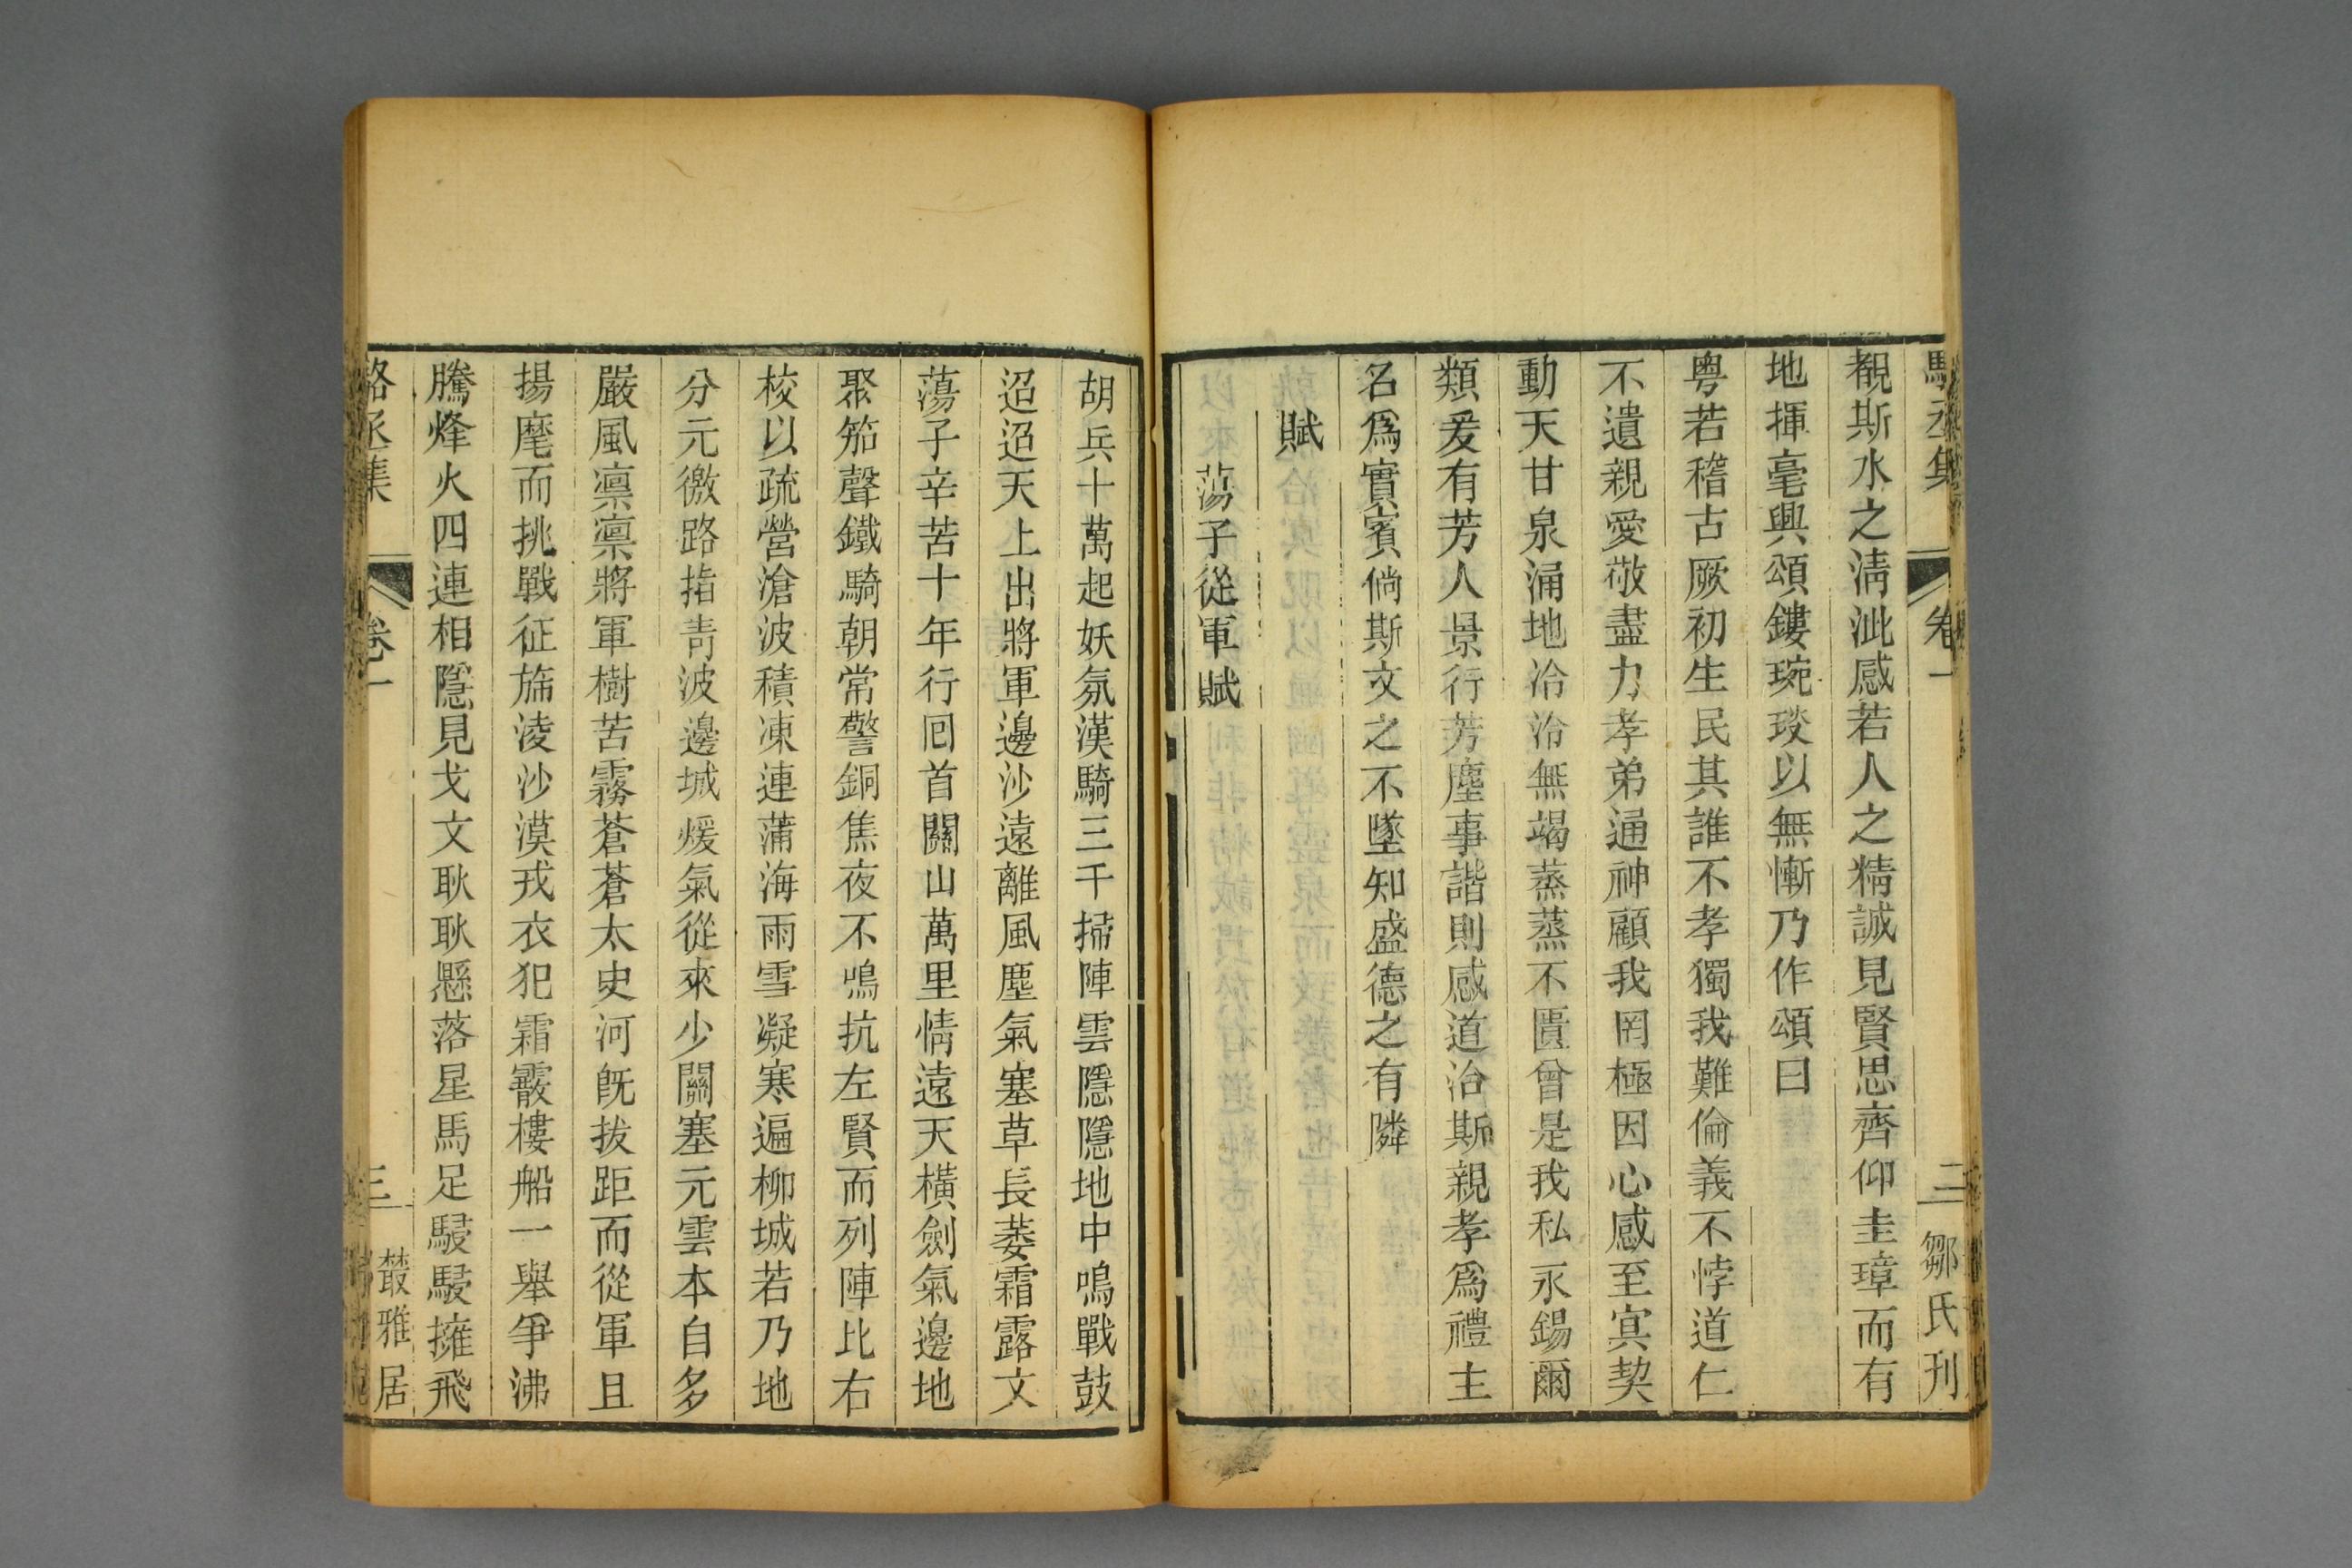 駱丞集 卷一 二 鄒氏刋
覩斯水之淸泚感若人之精誠見賢思齊仰圭璋而有
地揮毫興頌鏤琬琰以無慚乃作頌曰
粵若稽古厥初生民其誰不孝獨我難倫義不悖道仁
不遺親愛敬盡力孝弟通神顧我罔極因心感至寘契
動天甘泉涌地冾冾無竭蒸蒸不匱曾是我私永錫爾
類爰有芳人景行芳塵事諧則感道洽斯親孝爲禮主
名爲實賓倘斯文之不墜知盛德之有隣
賦
蕩子從軍賦
胡兵十萬起妖氛漢騎三千掃陣雲隱隱地中鳴戰鼓
迢迢天上出將軍邊沙遠離風塵氣塞草長萎霜露文
蕩子辛苦十年行囘首關山萬里情遠天橫劍氣邊地
聚笳聲鐵騎朝常警銅焦夜不鳴抗左賢而列陣比右
校以疏營滄波積凍連蒲海雨雪凝寒遍柳城若乃地
分元徼路指靑波邊城煖氣從來少關塞元雲本自多
嚴風凛凛將軍樹苦霧蒼蒼太史河旣拔距而從軍且
揚麾而挑戰征旆淩沙漠戎衣犯霜霰樓船一舉爭沸
騰烽火四連相隱見戈文耿耿懸落星馬足駸駸擁飛
駱丞集 卷一 三 叢雅居